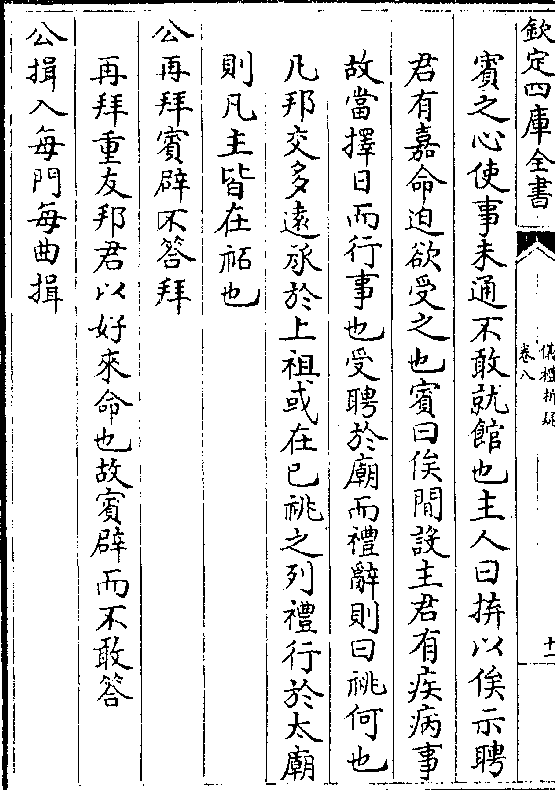 欽定四庫全書
儀禮析疑
卷八
十一
賓之心使事未通不敢就館也主人曰拚以俟示聘
君有嘉命迫欲受之也賓曰俟閒設主君有疾病事
故當擇日而行事也受聘於廟而禮辭則曰祧何也
凡邦交多遠承於上祖或在已祧之列禮行於太廟
則凡主皆在祏也
公再拜賓辟不答拜
再拜重友邦君以好來命也故賓辟而不敢答
公揖入每門每曲揖